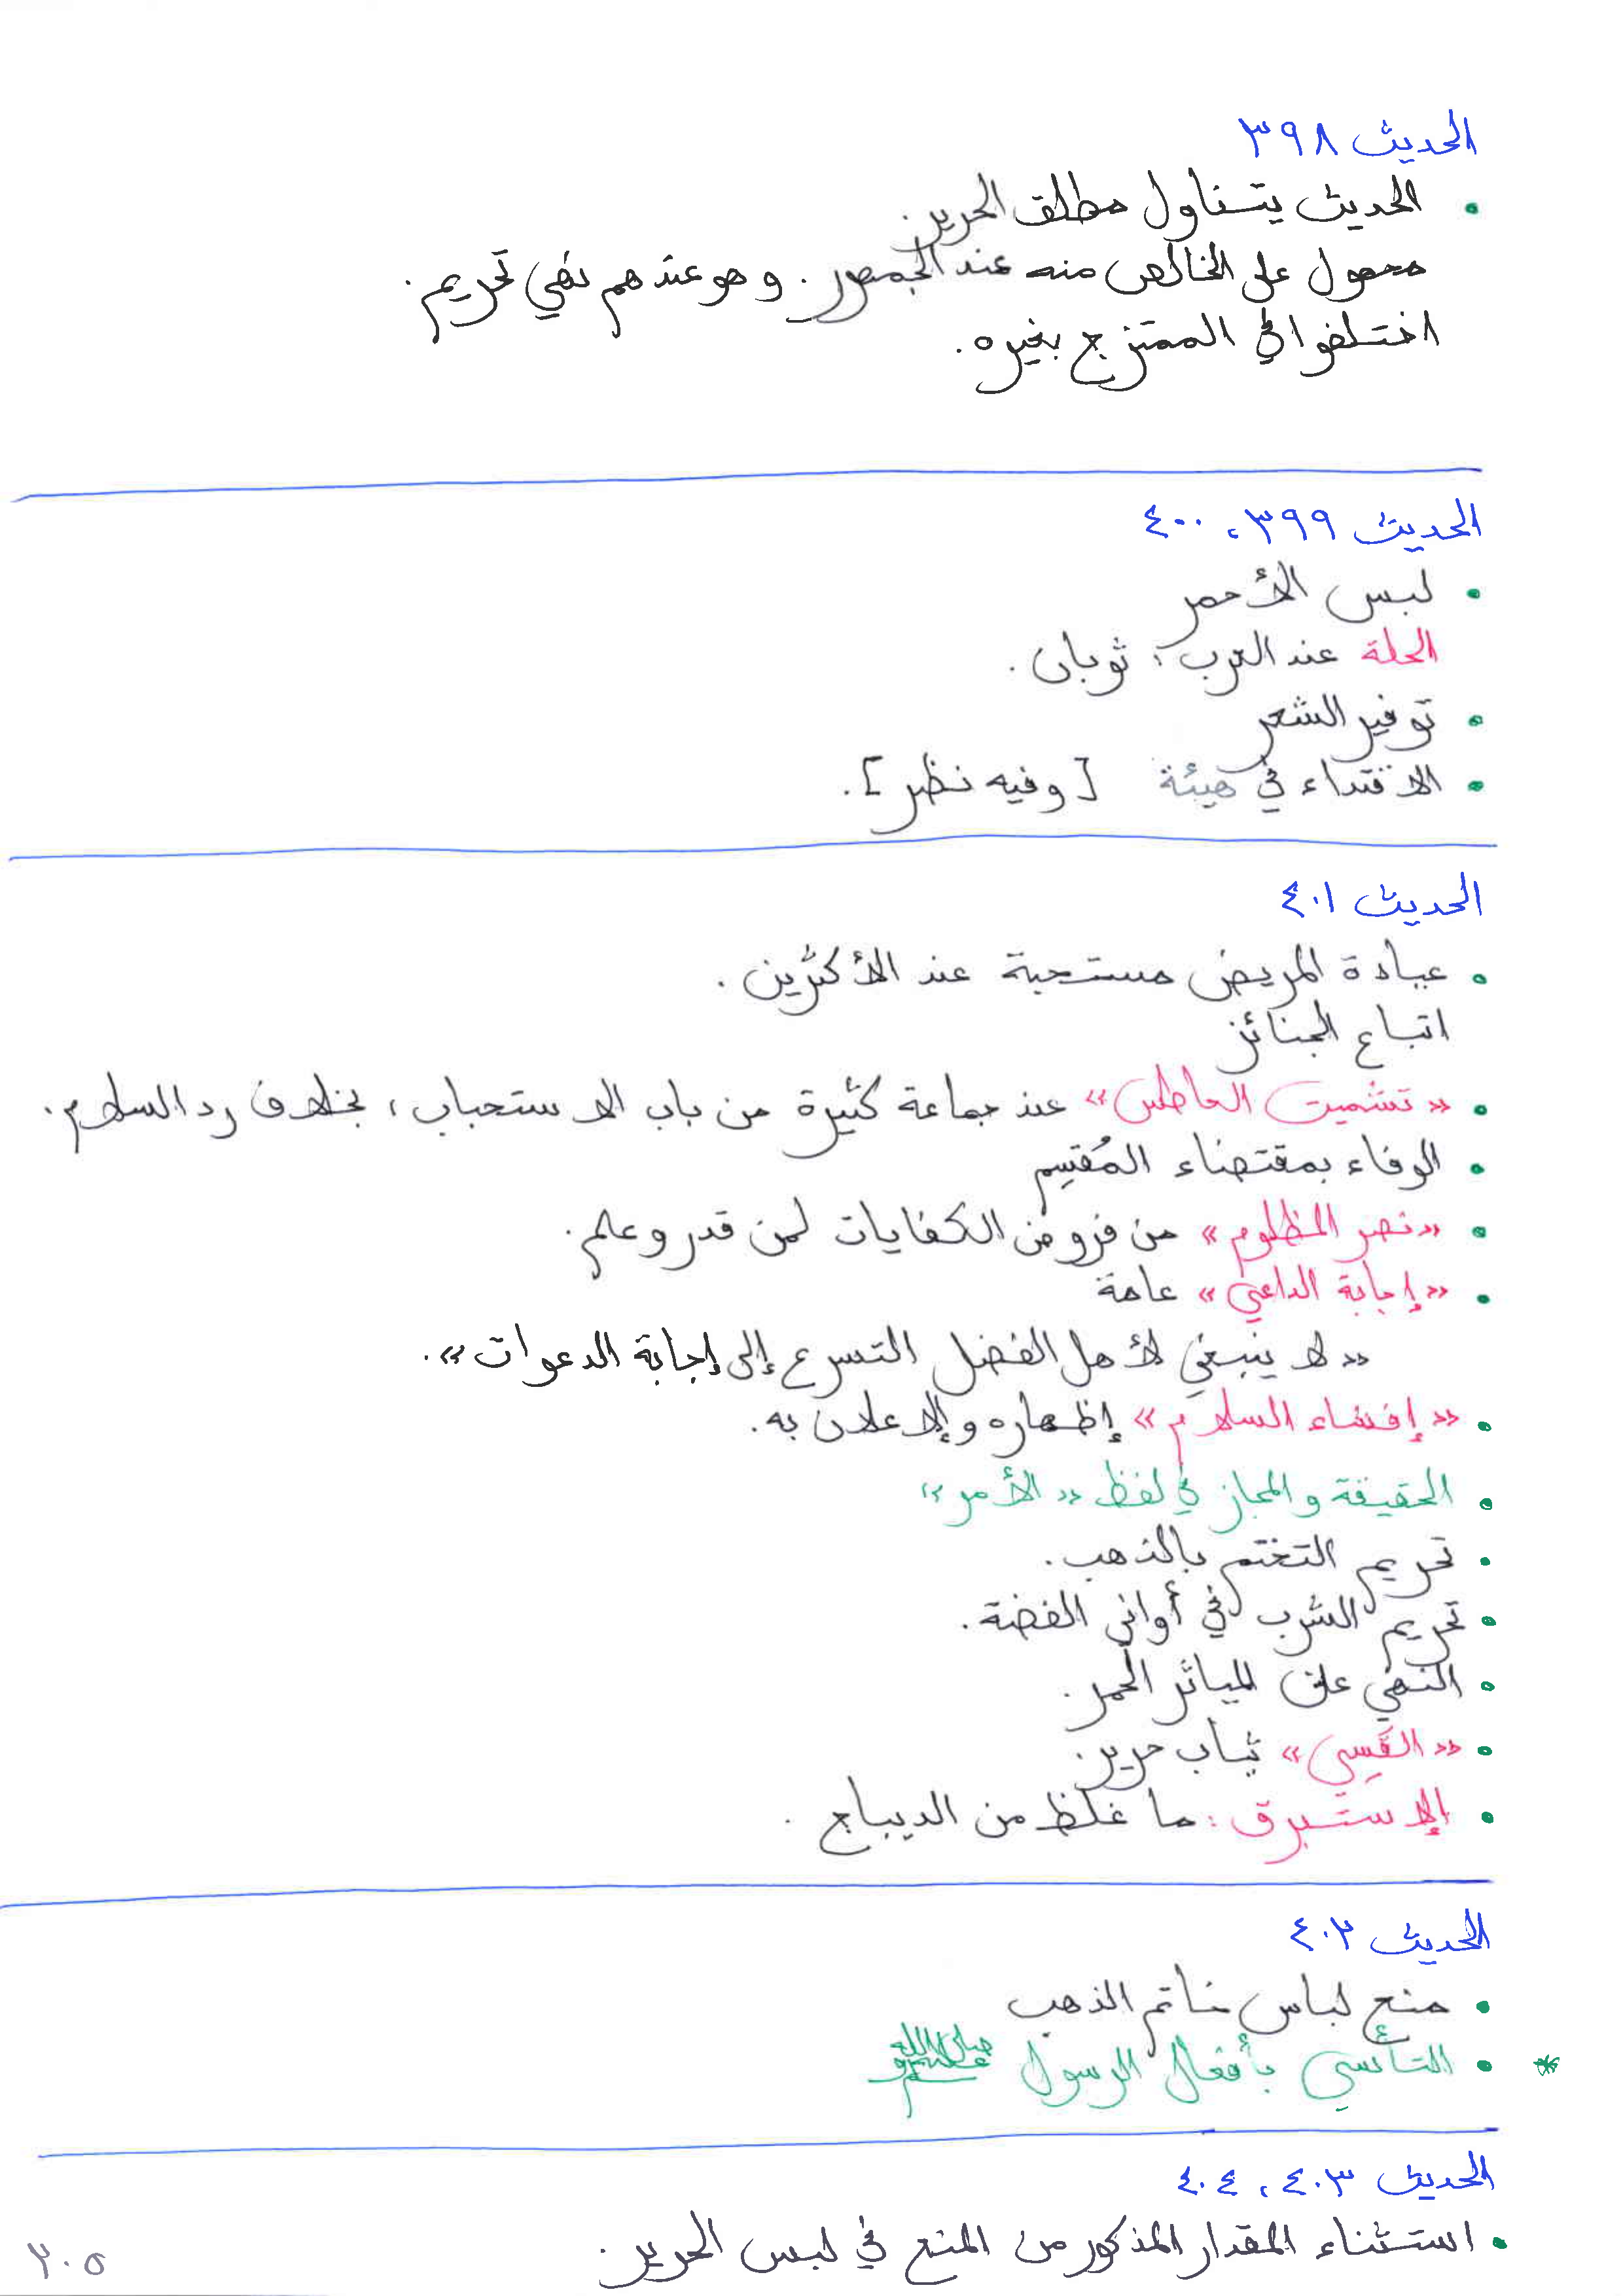 الحديث ٣٩٨
• الحديث يتناول مطلق الحرير.
محمول على الخالص منه عند الجمهور. وهو عندهم نهي تحريم.
اختلفوا في الممتزج بغيره.
الحديث ٣٩٩، ٤٠٠
• لبس الأحمر
الحلة عند العرب: ثوبان.
• توفير الشعر
• الاقتداء في هيئة [وفيه نظر].
الحديث ٤٠١
• عيادة المريض مستحبة عند الأكثرين.
اتباع الجنائز
• «تشميت العاطس» عند جماعة كثيرة من باب الاستحباب، بخلاف رد السلام.
• الوفاء بمقتضاء المُقسِم
• «نصر المظلوم» من فروض الكفايات لمن قدر وعلم.
• «إجابة الداعي» عامة
«لا ينبغي لأهل الفضل التسرع إلى إجابة الدعوات».
• «إفشاء السلام» إظهاره والإعلان به.
• الحقيقة والمجاز في لفظ «الأمر»
• تحريم التختم بالذهب.
• تحريم الشرب في أواني الفضة.
• النهي عن المياثر الحُمر.
• «القَسِي» ثياب حرير.
• الإستبرق: ما غلظ من الديباج.
الحديث ٤٠٢
• منع لباس خاتم الذهب
* • التأسي بأفعال الرسول صلى الله عليه وسلم
الحديث ٤٠٣، ٤٠٤
• استثناء المقدار المذكور من المنع في لبس الحرير.
٢٠٥